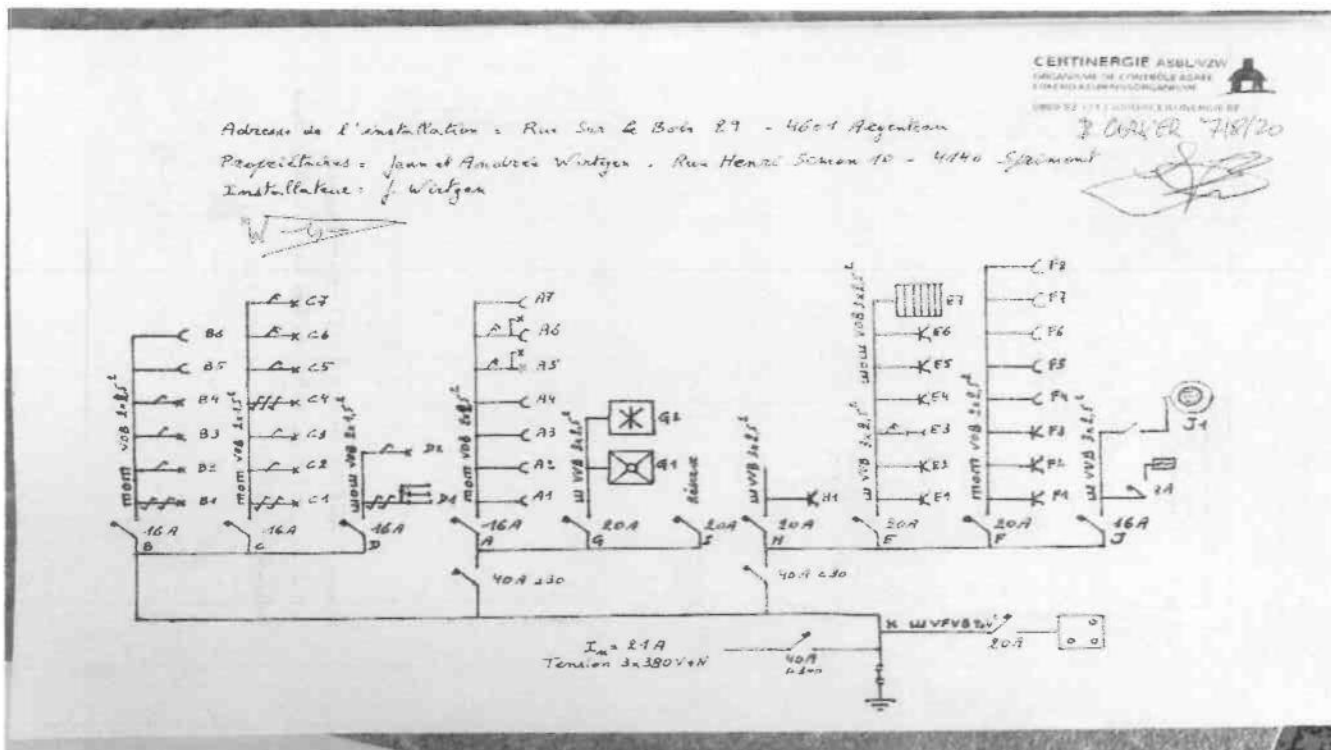 CENTINERGIE ASBL/VZW
ORGANISME DE CONTRÔLE AGRÉÉ
7/8/20
Adresse de l'installation : Rue Sur le Bois 29 - 4601 Argenteau
Propriétaires : Jean et Andrée Wirtgen. Rue Henri Simon 10 - 4140 Sprimont
Installateur : J. Wirtgen
B6
B5
B4
B3
B2
B1
mom VOB 2x2,5²
16A
B
C7
C6
C5
C4
C3
C2
C1
mom VOB 2x1,5²
16A
C
D2
D1
VOB 2x1,5²
16A
D
A7
A6
A5
A4
A3
A2
A1
mom VOB 2x2,5²
16A
A
G2
G1
VVB 3x2,5²
20A
G
Réserve
20A
I
H1
VVB 3x2,5²
20A
H
E7
E6
E5
E4
E3
E2
E1
VOB 3x2,5²
VVB 3x2,5²
20A
E
F8
F7
F6
F5
F4
F3
F2
F1
mom VOB 2x2,5²
20A
F
J1
2A
VVB 3x2,5²
16A
J
40A Δ30
40A Δ30
VFVB
20A
In = 21A
Tension 3x380V+N
40A
Δ300